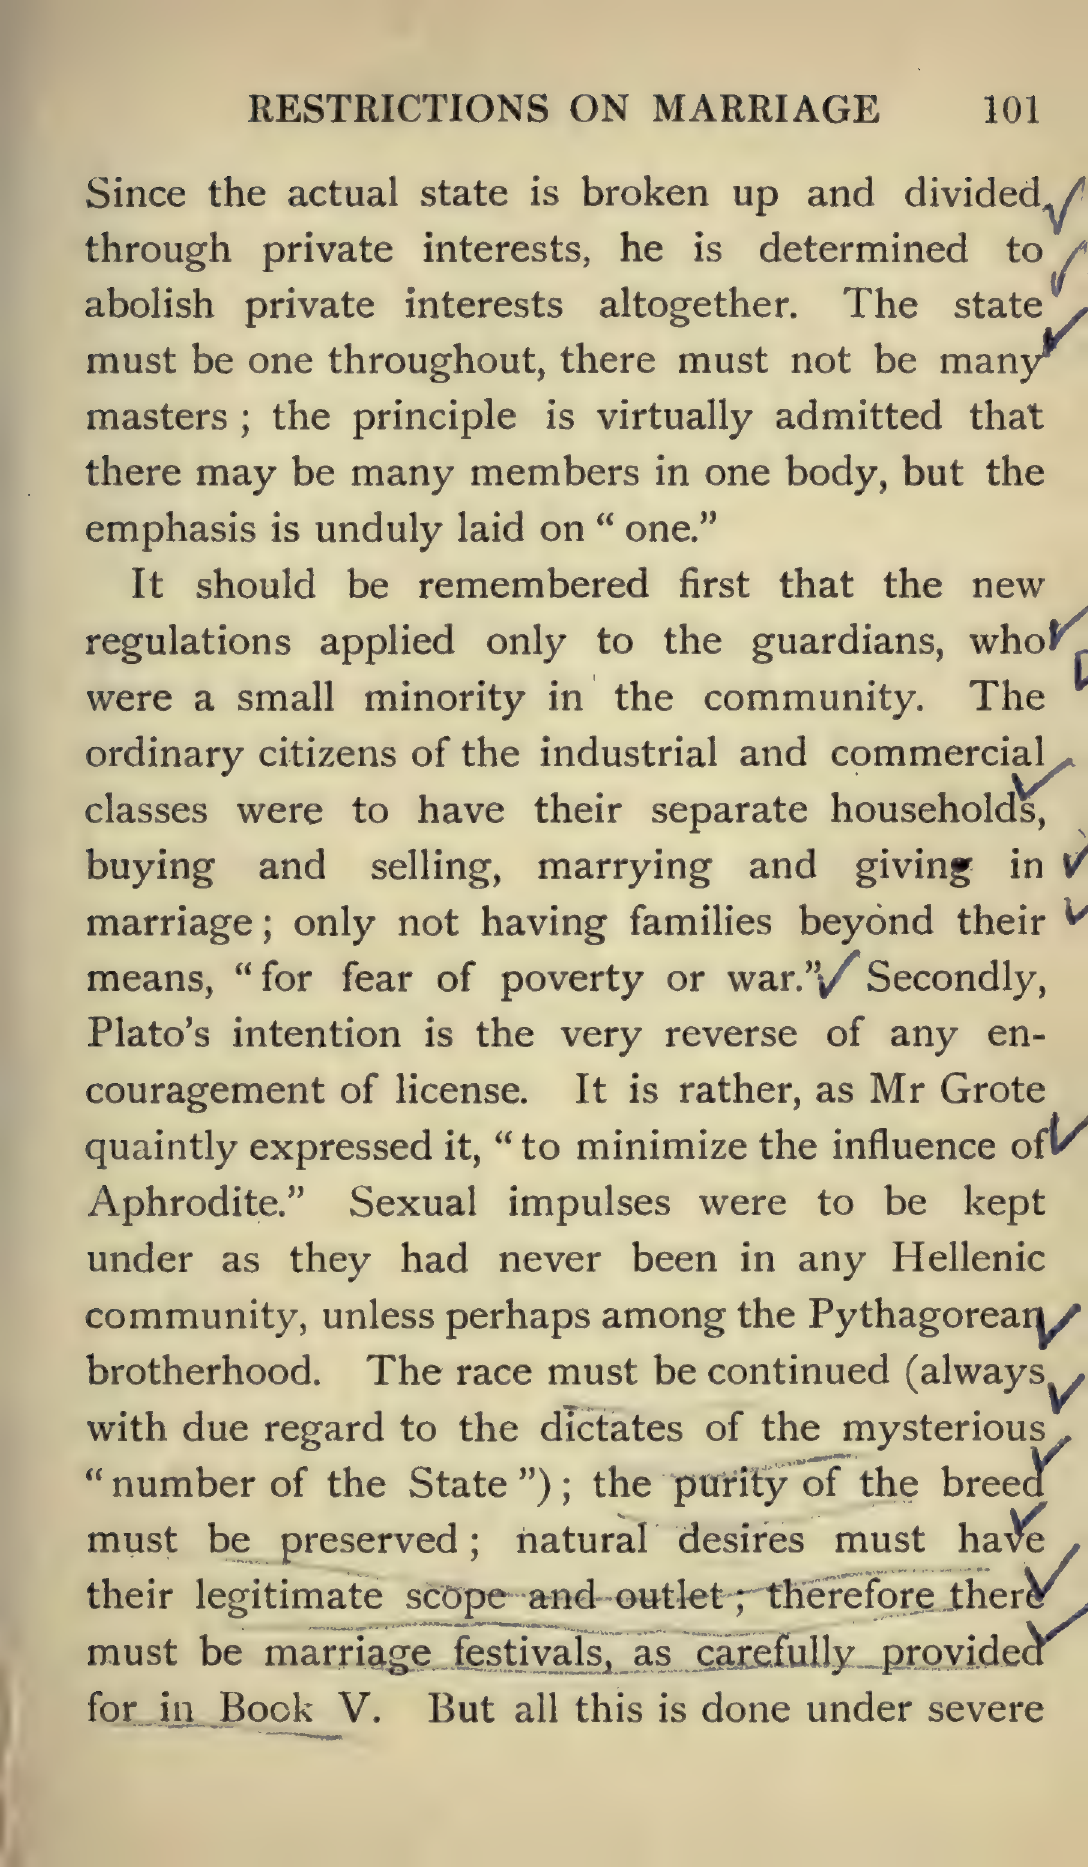 RESTRICTIONS ON MARRIAGE 101
Since the actual state is broken up and divided
through private interests, he is determined to
abolish private interests altogether. The state
must be one throughout, there must not be many
masters ; the principle is virtually admitted that
there may be many members in one body, but the
emphasis is unduly laid on “ one.”
It should be remembered first that the new
regulations applied only to the guardians, who
were a small minority in the community. The
ordinary citizens of the industrial and commercial
classes were to have their separate households,
buying and selling, marrying and giving in
marriage ; only not having families beyond their
means, “ for fear of poverty or war.” Secondly,
Plato’s intention is the very reverse of any en-
couragement of license. It is rather, as Mr Grote
quaintly expressed it, “ to minimize the influence of
Aphrodite.” Sexual impulses were to be kept
under as they had never been in any Hellenic
community, unless perhaps among the Pythagorean
brotherhood. The race must be continued (always
with due regard to the dictates of the mysterious
“ number of the State ”) ; the purity of the breed
must be preserved ; natural desires must have
their legitimate scope and outlet ; therefore there
must be marriage festivals, as carefully provided
for in Book V. But all this is done under severe